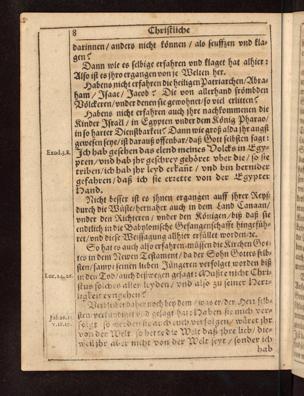 8 Christliche
darinnen / anders nicht können / als seufftzen vnd kla-
gen?
Dann wie es selbige erfahren vnd klaget hat alhier:
Also ist es ihro ergangen von je Welten her.
Habens nicht erfahren die heiligen Patriarchen / Abra-
ham / Isaac / Jacob? Die von allerhand frömbden
Völckeren / vnder denen sie gewohnet / so viel erlitten?
Habens nicht erfahren auch ihre nachkommenen die
Kinder Israël / in Egypten vnder dem König Pharao /
in so harter Dienstbarkeit? Dann wie groß alda ihr angst
gewesen seye / ist darauß offenbar / daß Gott selbsten sagt:
Exod. 3.
Ich hab gesehen das elend meines Volcks in Egy-
pten / vnd hab ihr geschrey gehöret vber die / so sie
triben / ich hab ihr leyd erkant / vnd bin hernider
gefahren / daß ich sie errette von der Egypter
Hand.
Nicht besser ist es ihnen ergangen auff ihrer Reyß
durch die Wüste / hernaher auch in dem Land Canaan /
vnder den Richteren / vnder den Königen / biß daß sie
endtlich in die Babylonische Gefangenschafft hingefüh-
ret / vnd diese Weissagung allhier erfüllet worden ist.
So hat es auch also erfahren müssen die Kirchen Got-
tes in dem Newen Testament / da der Sohn Gottes selb-
sten / sampt seinen lieben Jüngeren verfolget worden biß
Luc. 24. 26.
in den Tod / auch deßwegen gesagt: Mußte nicht Chri-
stus solches alles leyden / vnd also zu seiner Herr-
ligkeit eingehen?
noch bey dem / was er / der Herr selb-
sten verkündiget vnd gesagt hat: Haben sie mich ver-
folget so werden sie euch auch verfolgen / wäret ihr
von der Welt so hette die Welt daß ihre lieb / die-
weil ihr aber nicht von der Welt seyt / sonder ich
hab